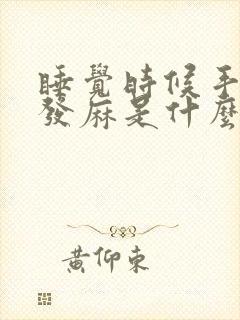 睡覺時候手
發麻是什麼
黃仰東